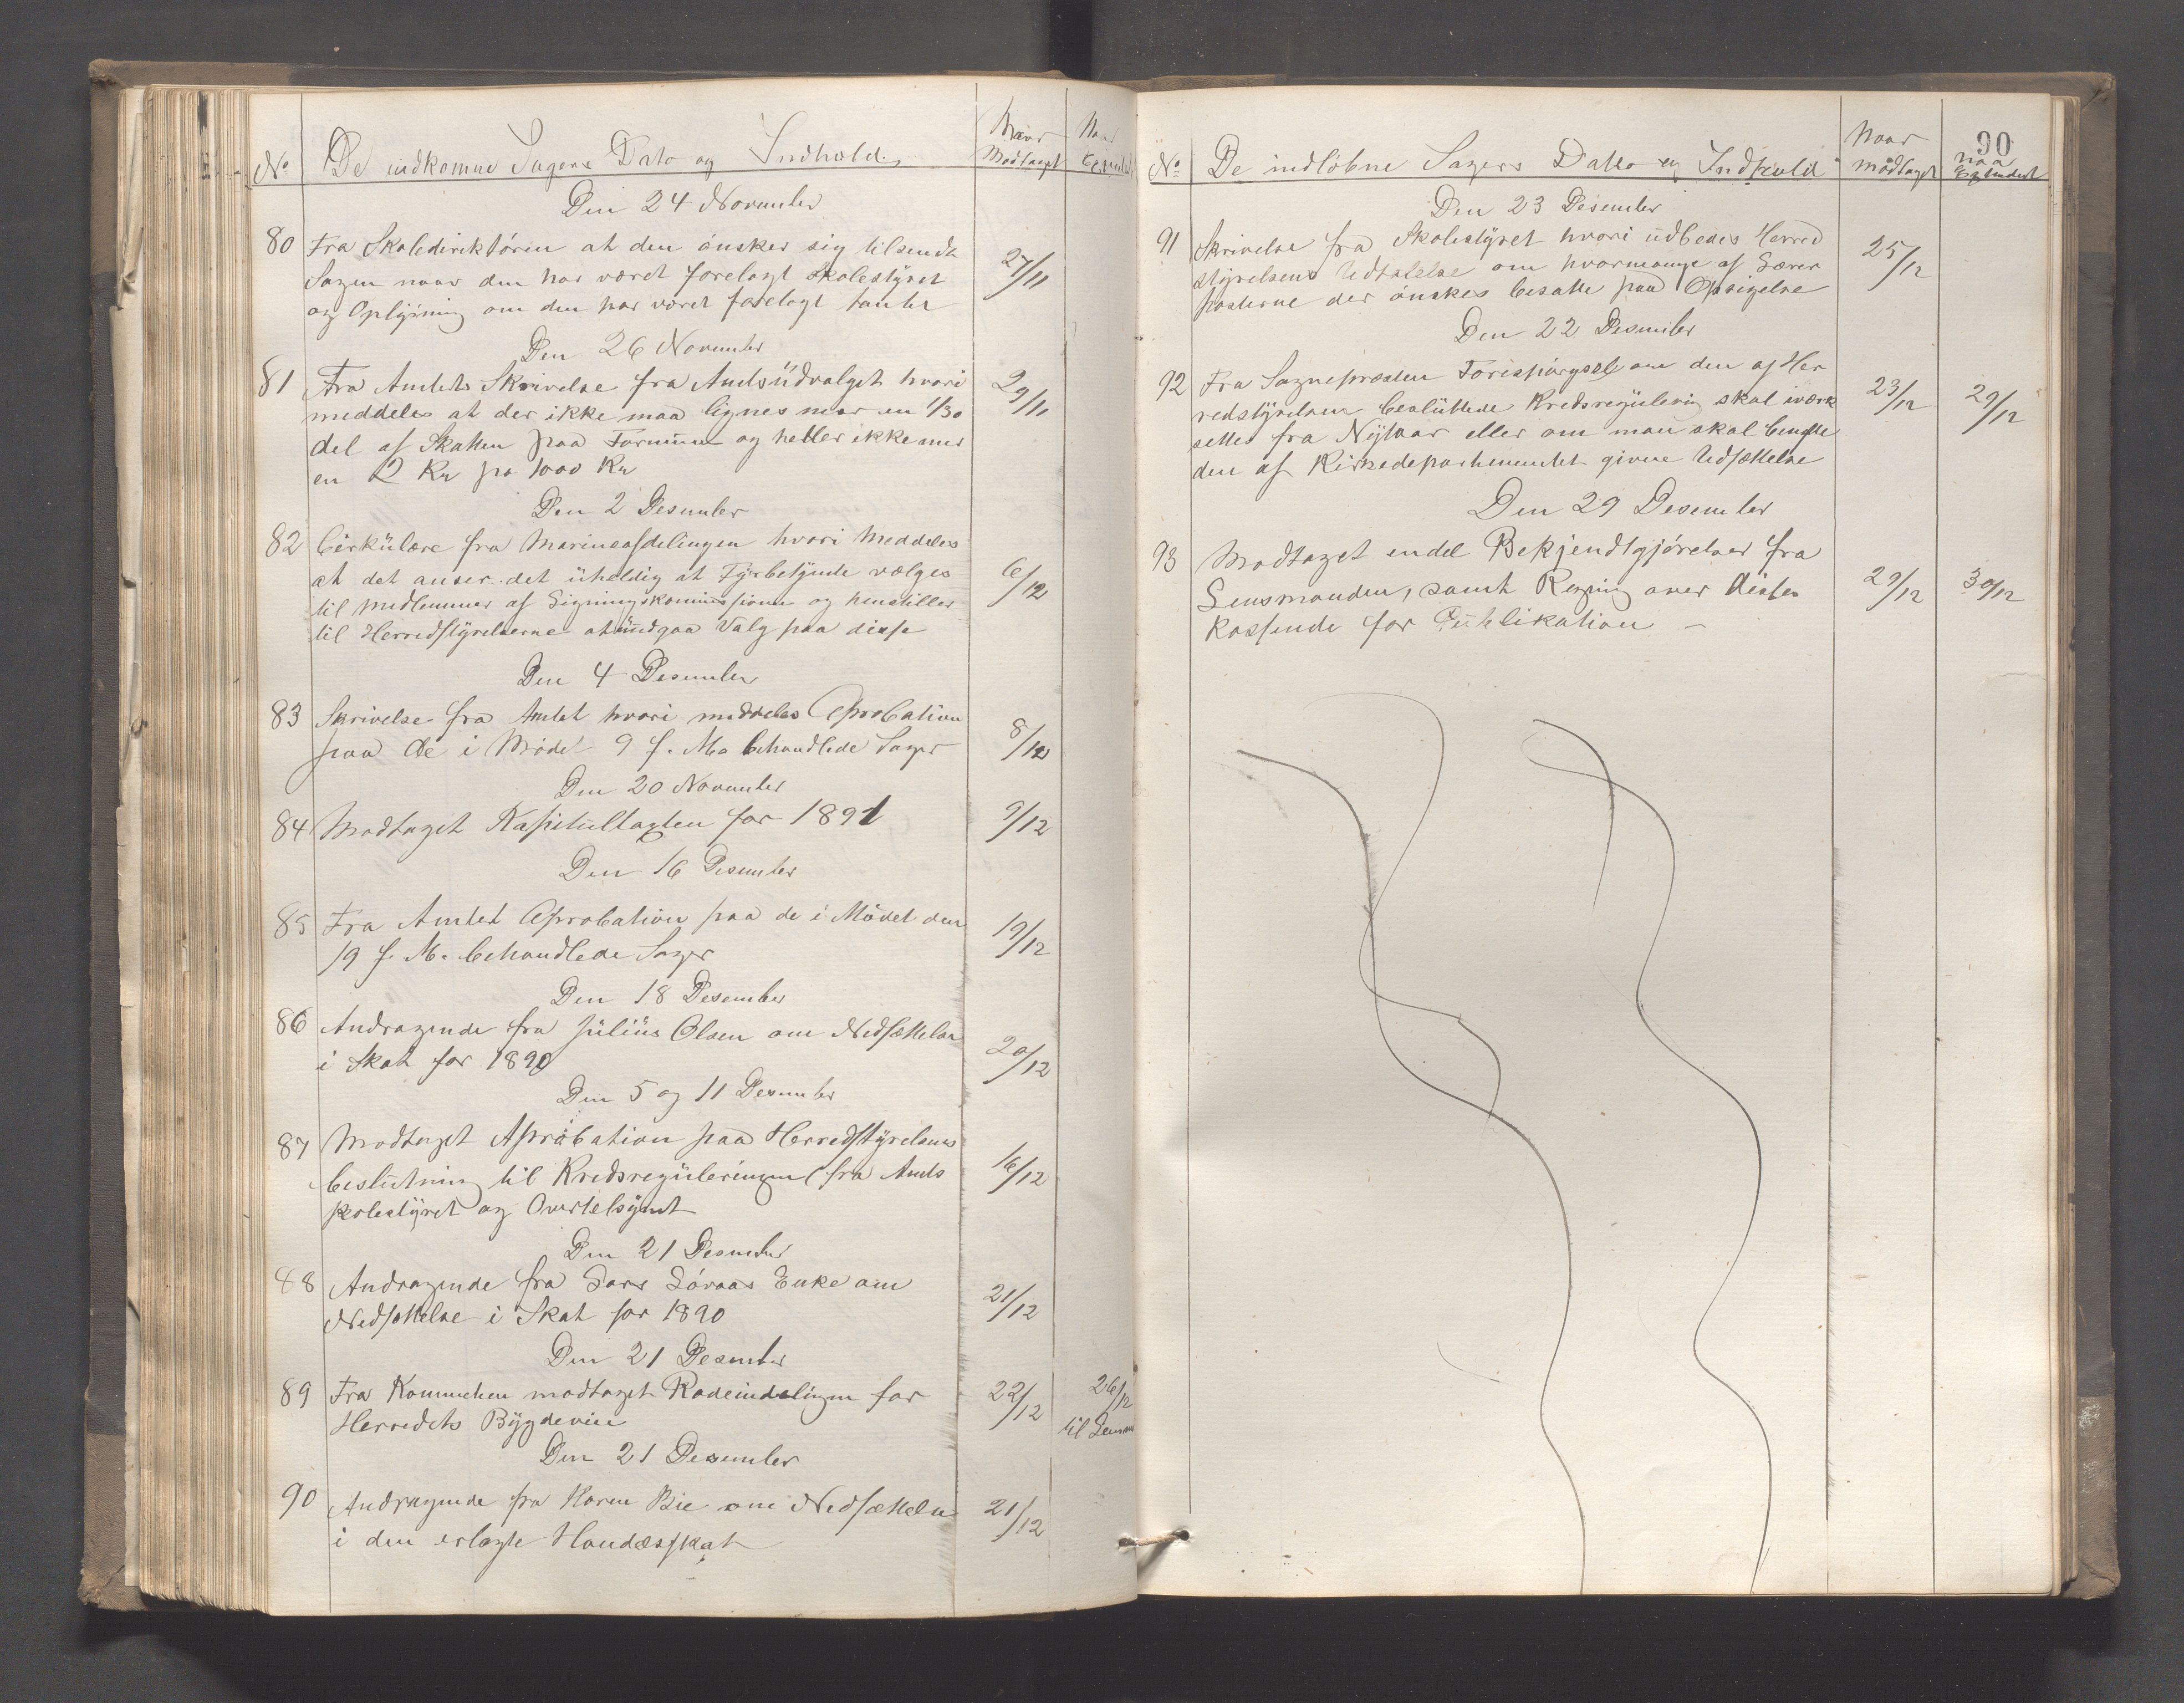 No De indkomne Sagers Dato og Indhold. Naar Modtaget Naar
Den 24 November
80 Fra Skoledirektören at den önsker sig tilsendt
Sagen naar den har været forelagt Skolestyret 27/11
og Oplysning om den har været forelagt
Den 26 November
81 Fra Amtets Skrivelse fra Amtsudvalget hvori 29/11
meddeles at der ikke maa lignes mer en 1/30
del af Skatten paa Formue og heller ikke mer
en 2 Kr pr 1000 Kr
Den 2 Desember
82 Cirkulære fra Marineafdelingen hvori Meddeles
at det anser det uheldig at Fyrbetjente vælges 6/12
til Medlemmer af Ligningskommissionen og henstiller
til Herredstyrelserne at undgaa Valg paa disse
Den 4 Desember
83 Skrivelse fra Amtet hvori meddeles Aprobation
paa de i Mödet 9 f. M. behandlede Sager 8/12
Den 20 November
84 Modtaget Kapiteltaxten for 1891 9/12
Den 16 Desember
85 Fra Amtet Aprobation paa de i Mödet den
19 f. M. behandlede Sager 19/12
Den 18 Desember
86 Andragende fra Julius Olsen om Nedsættelse
i Skat for 1890 20/12
Den 5 og 11 Desember
87 Modtaget Aprobation paa Herredstyrelsens
beslutning til Kredsreguleringen fra Amts 16/12
skolestyret og
Den 21 Desember
88 Andragende fra Lars Löraas Enke om
Nedsættelse i Skat for 1890 21/12
Den 21 Desember
89 Fra modtaget Rodeindelingen for 22/12 26/12
Herredets Bygdeveie til
Den 21 Desember
90 Andragende fra Karen Bie om Nedsættelse 21/12
i den erlagte Hundesskat
90
No De indlöbne Sagers Datto og Indhold Naar modtaget naar
Den 23 Desember
91 Skrivelse fra Skolestyret hvori udbedes Herred
styrelsens Udtalelse om hvormange af Lærer 25/12
posterne der önskes besatte paa Opsigelse
Den 22 Desember
92 Fra Sognepresten Forespörgsel om den af Her
redstyrelsen besluttede Kredsregulering skal iværk 23/12 29/12
settes fra Nytaar eller om man skal benytte
den af Kirkedepartementet givne Udsættelse
Den 29 Desember
93 Modtaget endel Bekjendtgjörelser fra
Lensmanden, samt Regning over disses 29/12 30/12
Kostende for Publikation